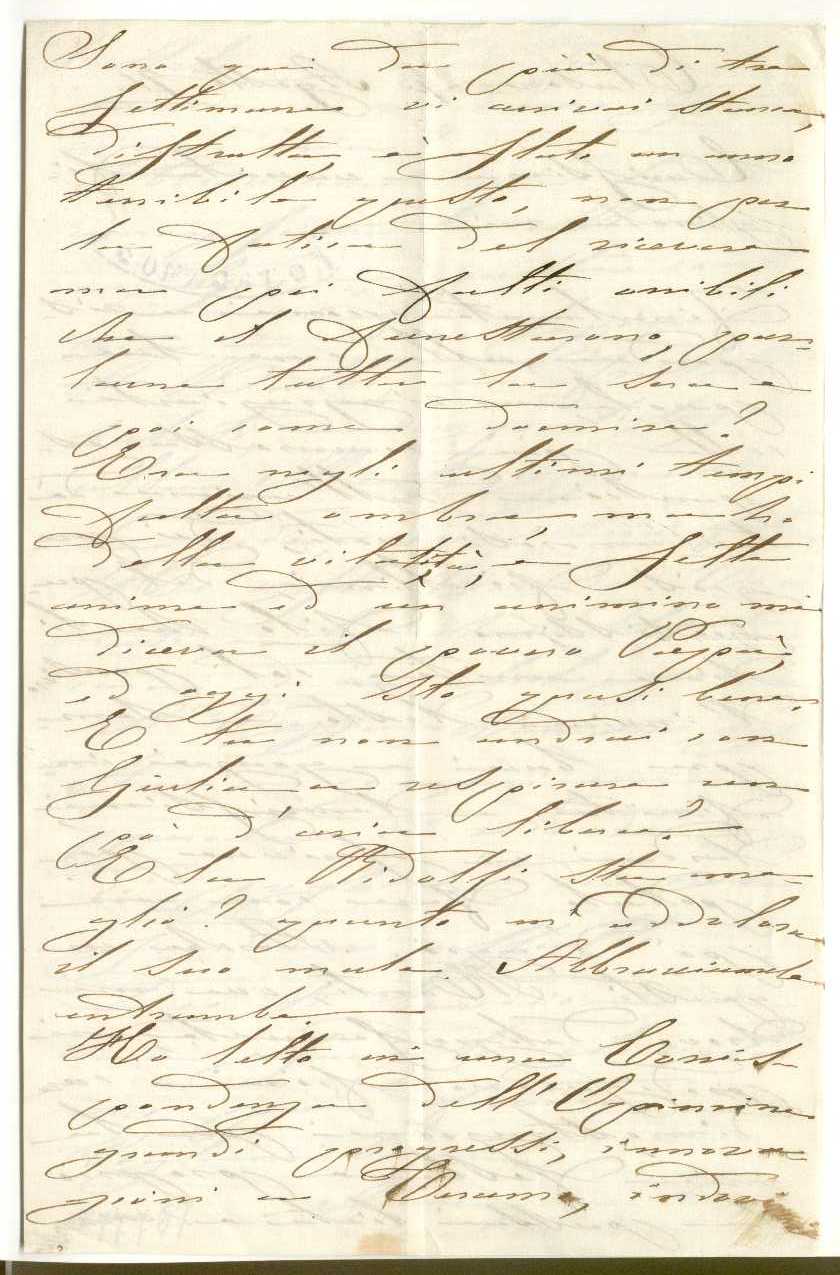 Sono qui da più di tre
settimane vi arrivai stanca,
distrutta è stato un anno
terribile questo, non per
la fatica del ricevere
ma pei fatti orribili
che il funestarono, par-
larne tutta la sera e
poi come dormire?
Ero negli ultimi tempi
fatta ombra, ma ho
della vitalità, e sette
anime ed un animino mi
diceva il povero Peppe,
ed oggi sto quasi bene.
E tu non andrai con
Giulia a respirare un
pò d'aria libera?
E la Ridolfi sta me-
glio? quanto m'addolora
il suo male. Abbracciamele
entrambe.
Ho letto in una Corris
pondenza dell'Opinione
grandi progressi, innova
zioni a